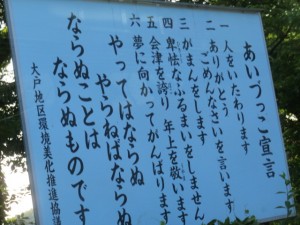 あいづっこ宣言
一 人をいたわります
二 ありがとう
ごめんなさいを言います
三 がまんをします
四 卑怯なふるまいをしません
五 会津を誇り 年上を敬います
六 夢に向かってがんばります
やってはならぬ
やらねばならぬ
ならぬことは
ならぬものです
大戸地区環境美化推進協議